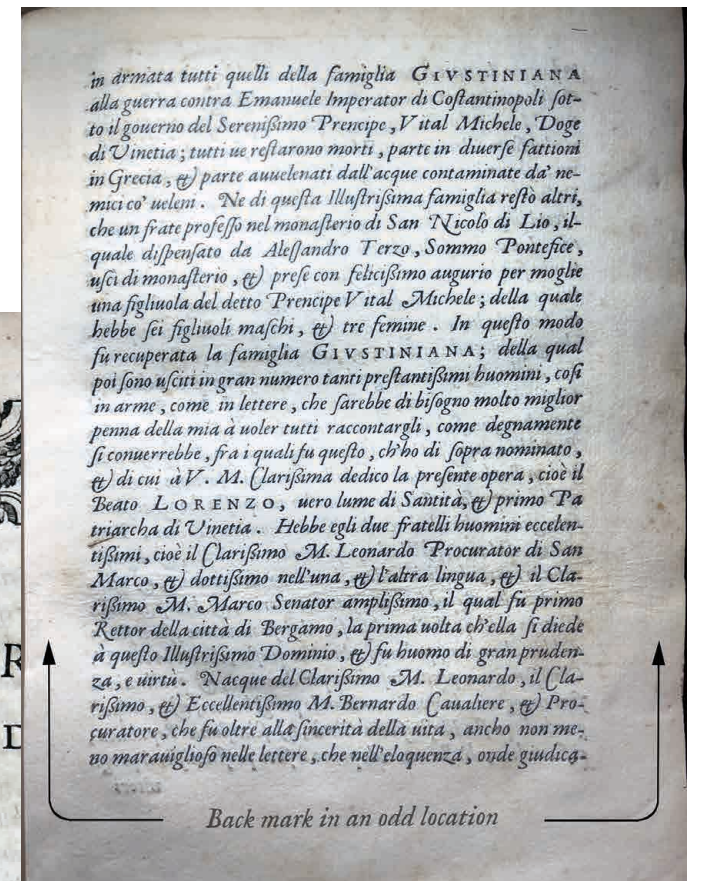 in armata tutti quelli della famiglia GIVSTINIANA
alla guerra contra Emanuele Imperator di Coſtantinopoli ſot-
to il gouerno del Sereniſſimo Prencipe, Vital Michele, Doge
di Vinetia; tutti ue reſtarono morti, parte in diuerſe fattioni
in Grecia, & parte auuelenati dall'acque contaminate da' ne-
mici co' ueleni. Ne di queſta Illuſtriſſima famiglia reſtò altri,
che un frate profeſſo nel monaſterio di San Nicolò di Lio, il-
quale diſpenſato da Aleſſandro Terzo, Sommo Pontefice,
uſci di monaſterio, & preſe con feliciſſimo augurio per moglie
una figliuola del detto Prencipe Vital Michele; della quale
hebbe ſei figliuoli maſchi, & tre femine. In queſto modo
fu recuperata la famiglia GIVSTINIANA; della qual
poi ſono uſciti in gran numero tanti preſtantiſſimi huomini, coſi
in arme, come in lettere, che ſarebbe di biſogno molto miglior
penna della mia à uoler tutti raccontargli, come degnamente
ſi conuerrebbe, fra i quali fu queſto, ch'ho di ſopra nominato,
& di cui à V. M. Clariſſima dedico la preſente opera, cioè il
Beato LORENZO, uero lume di Santità, & primo Pa
triarcha di Vinetia. Hebbe egli due fratelli huomini eccelen-
tiſſimi, cioè il Clariſſimo M. Leonardo Procurator di San
Marco, & dottiſſimo nell'una, & l'altra lingua, & il Cla-
riſſimo M. Marco Senator ampliſſimo, il qual fu primo
Rettor della città di Bergamo, la prima uolta ch'ella ſi diede
à queſto Illuſtriſſimo Dominio, & fu huomo di gran pruden-
za, e uirtù. Nacque del Clariſſimo M. Leonardo, il Cla-
riſſimo, & Eccellentiſſimo M. Bernardo Caualiere, & Pro-
curatore, che fu oltre alla ſincerità della uita, ancho non me-
no marauiglioſo nelle lettere, che nell'eloquenza, onde giudica-
R
D
Back mark in an odd location